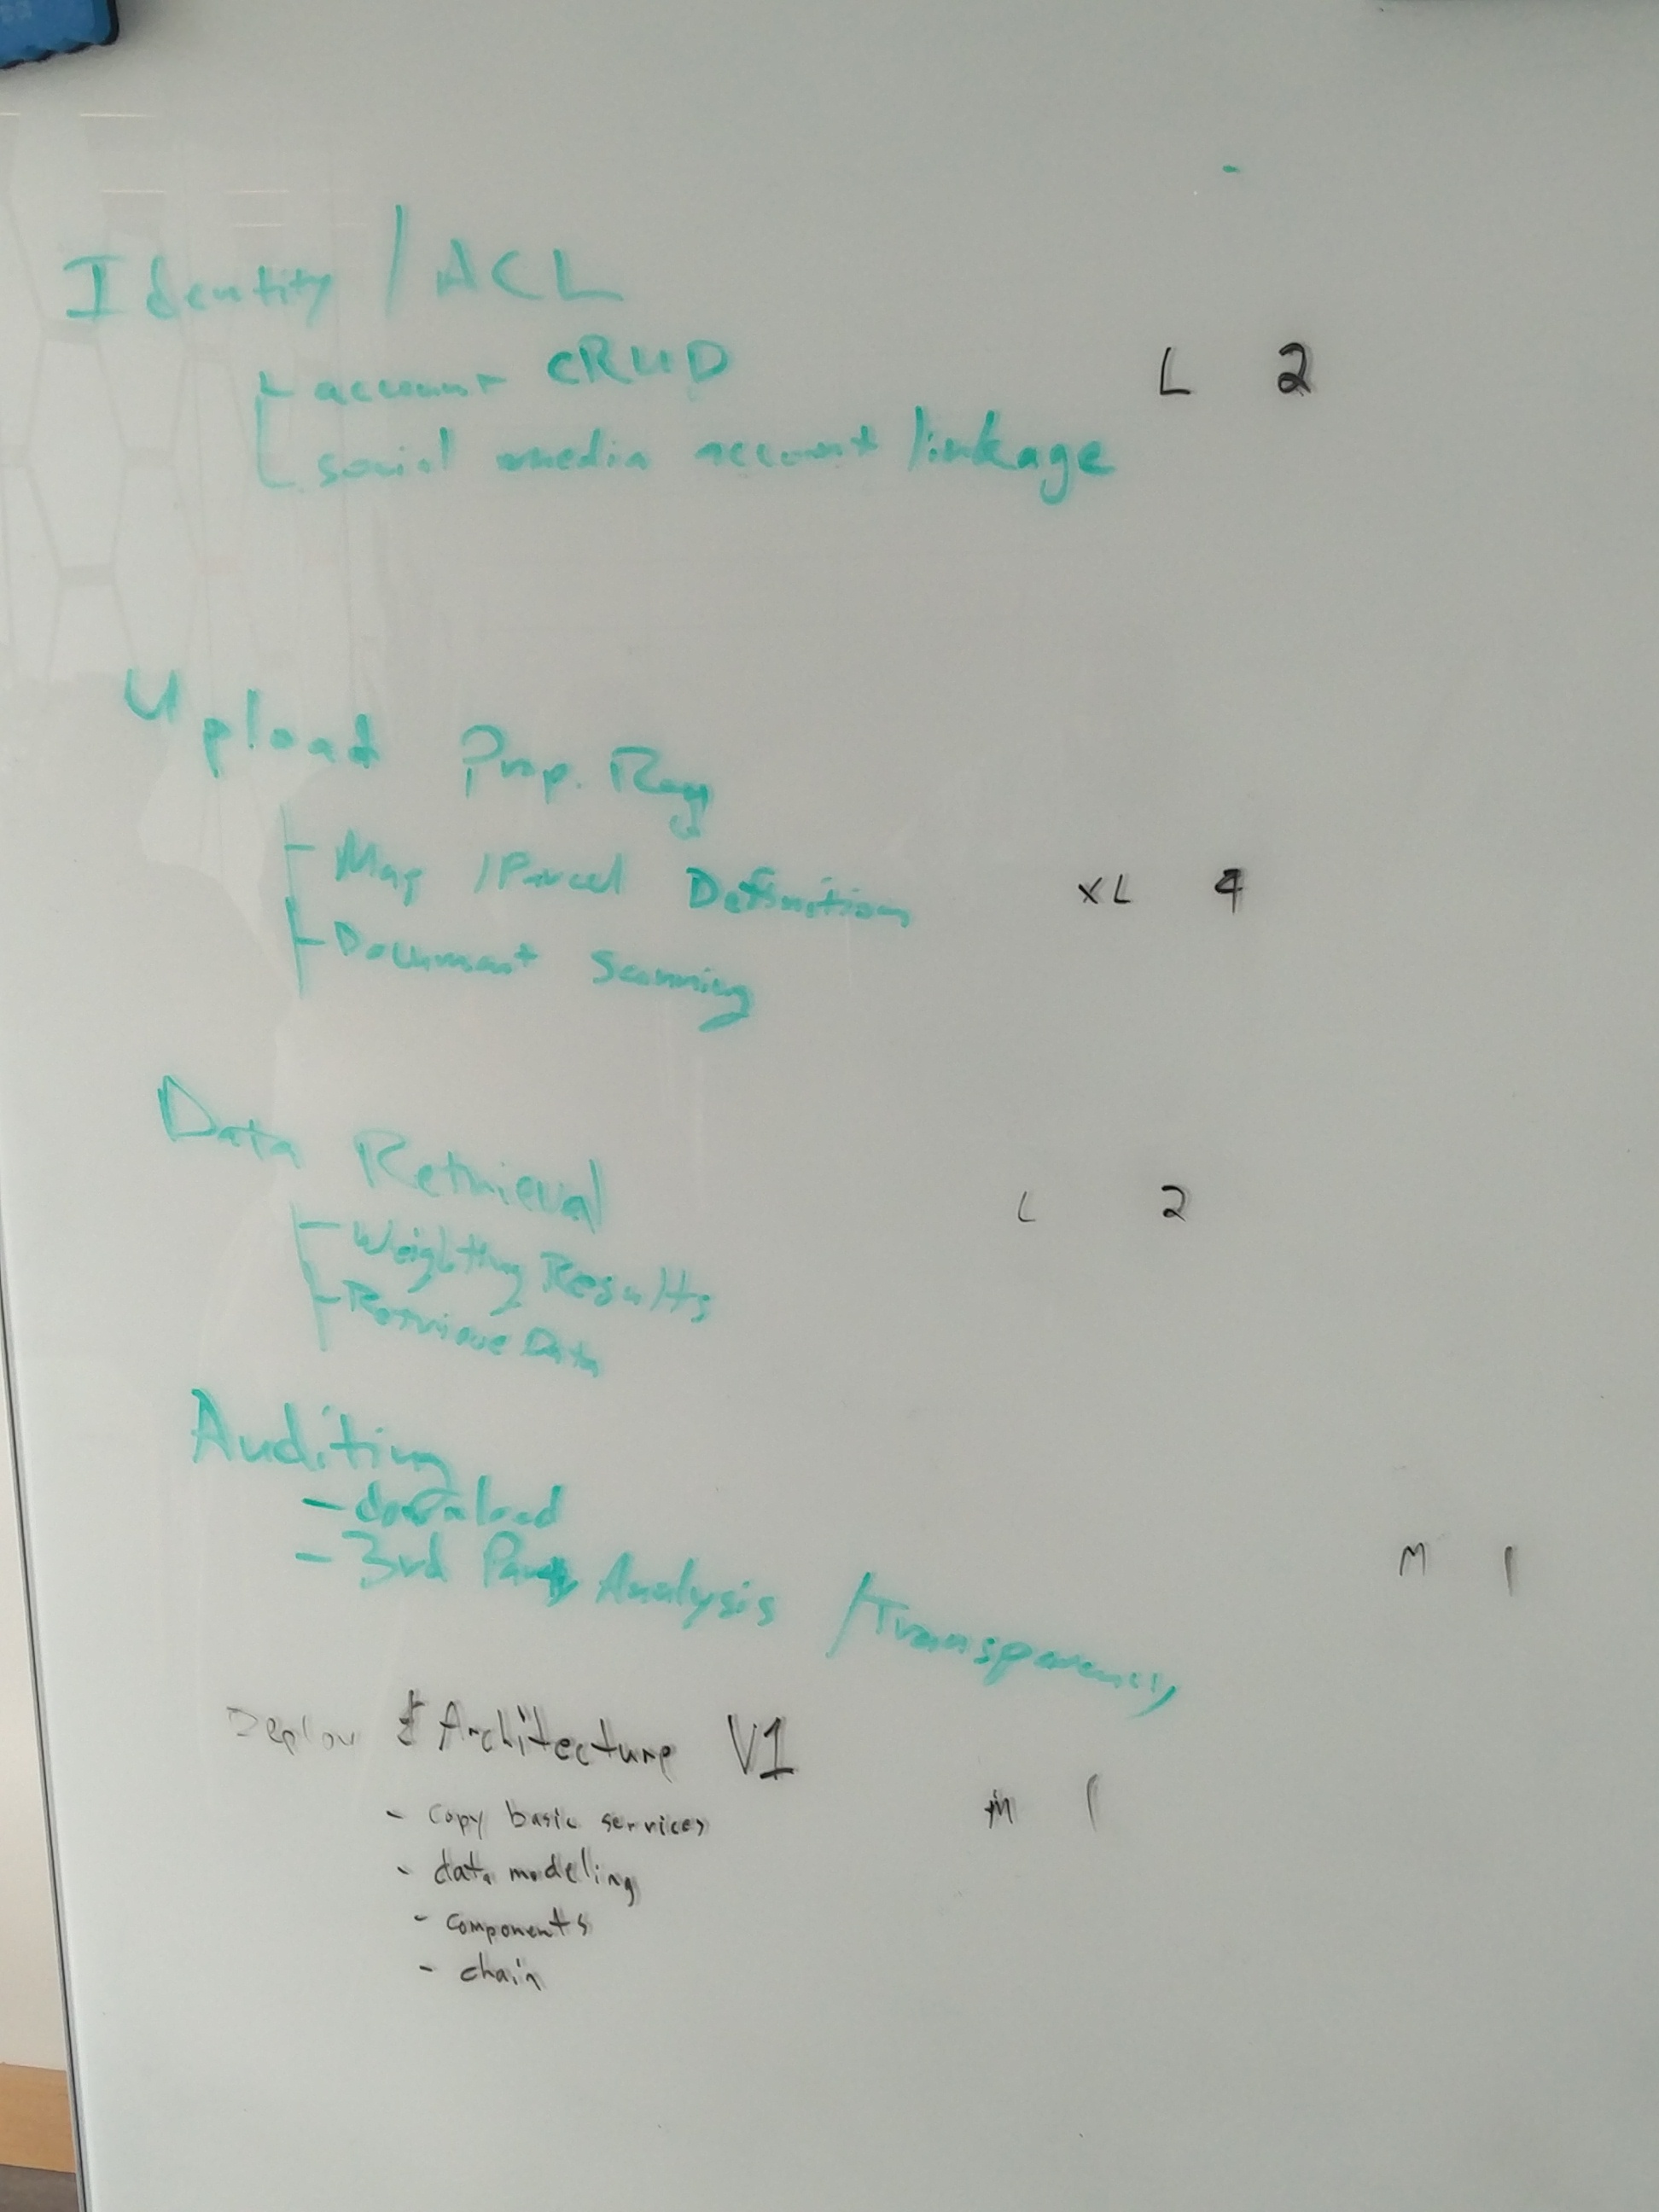 Identity / ACL
account CRUD L 2
social media account linkage
Upload Prop. Reg
Map / Parcel Definition XL 4
Document Scanning
Data Retrieval
L 2
Weighting Results
Retrieve Data
Auditing
- download
- 3rd Party Analysis / Transparency M 1
Deploy & Architecture V1
- copy basic services M 1
- data modeling
- components
- chain